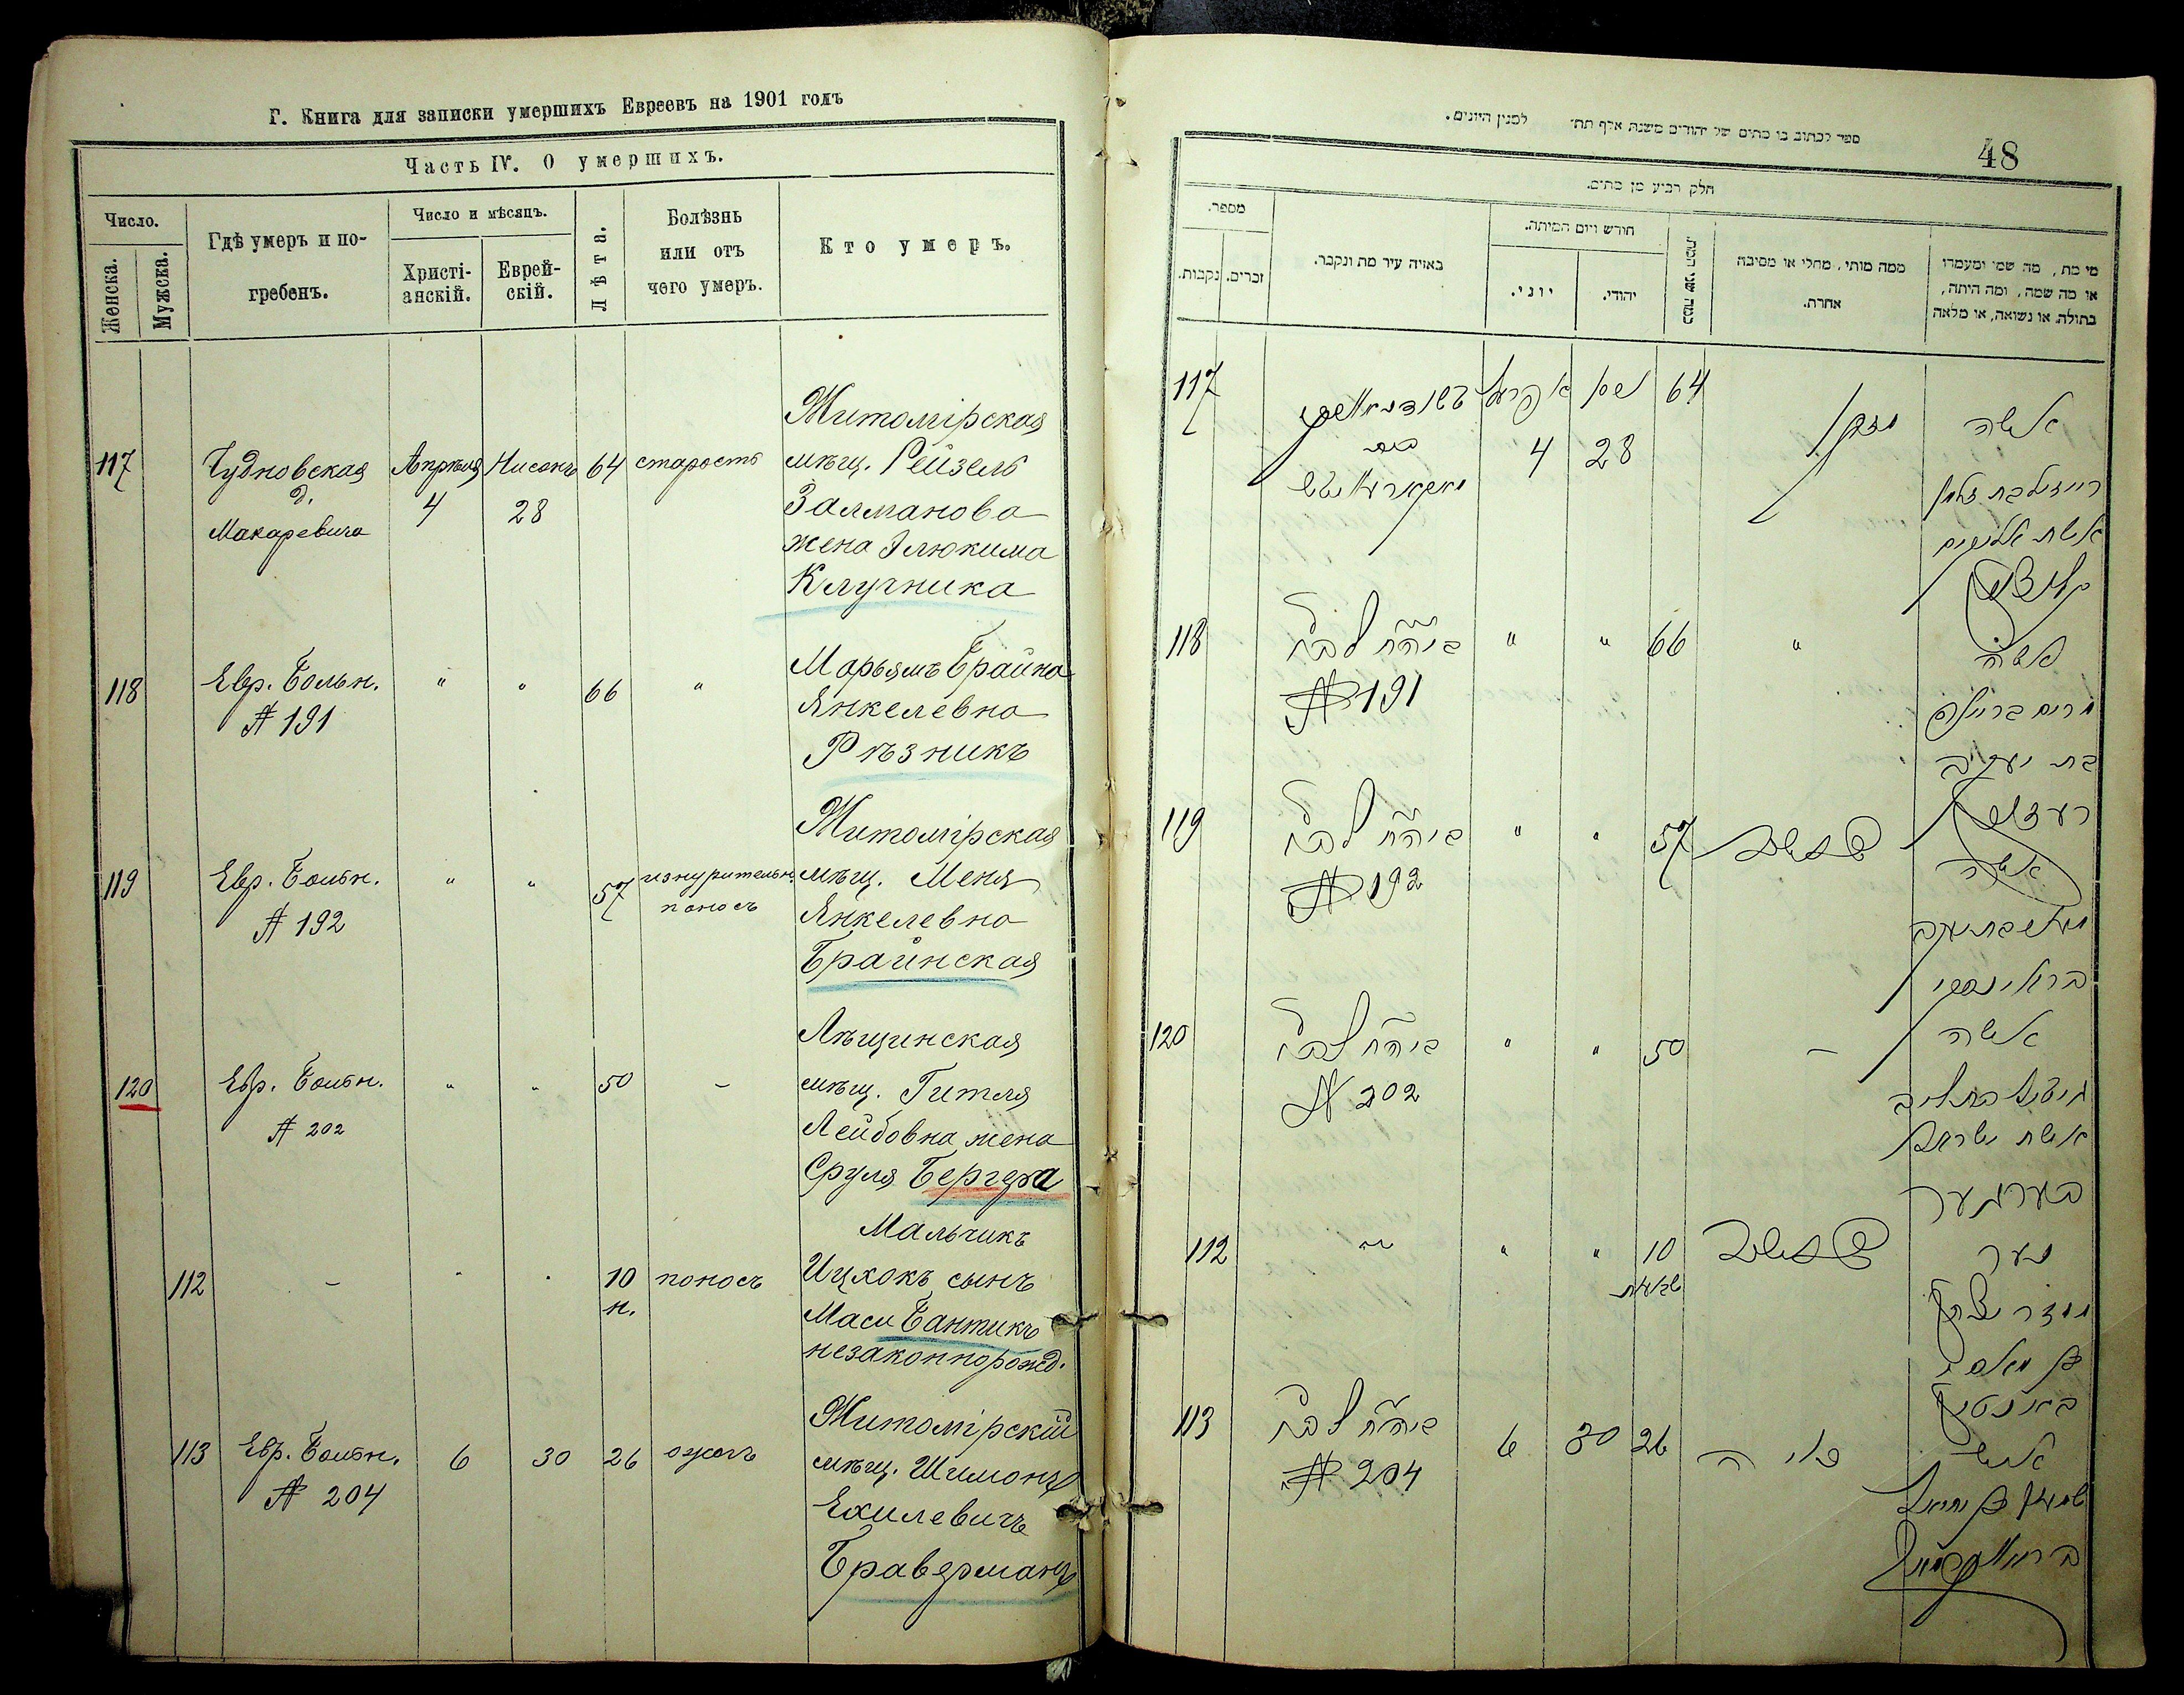 Г. Книга для записки умершихъ Евреевъ на 1901 годъ
Часть IV. О умершихъ.
Число.
Женска.
Мужска.
Гдѣ умеръ и по-
гребенъ.
Число и мѣсяцъ.
Христі-
анскій.
Еврей-
скій.
Лѣта.
Болѣзнь
или отъ
чего умеръ.
Кто умеръ.
117
Чудновская
д.
Макаревича
Апрѣля
4
Нисонъ
28
64
старость
Житомірская
мѣщ. Рейзель
Залманова
жена Элюкима
Клучника
118
Евр. Больн.
№ 191
"
"
66
"
Марьямъ Брайна
Янкелевна
Рѣзникъ
119
Евр. Больн.
№ 192
"
"
57
изнурительн.
поносъ
Житомірская
мѣщ. Меня
Янкелевна
Браинская
120
Евр. Больн.
№ 202
"
"
50
–
Лѣщинская
мѣщ. Гитля
Лейбовна жена
Сруля Бергера
112
–
"
"
10
н.
поносъ
Мальчикъ
Ицхокъ сынъ
Маси Бантикъ
незаконнорожд.
113
Евр. Больн.
№ 204
6
30
26
ожогъ
Житомірскій
мѣщ. Шимонъ
Ехилевичъ
Браверманъ
ספר לכתוב בו מתים של יהודים משנת אלף תת' למנין היונים.
48
חלק רביע מן מתים.
מספר.
נקבות.
זכרים.
באיזה עיר מת ונקבר.
חודש ויום המיתה.
יוני.
יהודי.
כמה שני המת.
ממה מותי, מחלי או מסיבה
אחרת.
מי מת, מה שמו ומעמדו
או מה שמה, ומה היתה,
בתולה, או נשואה, או מלאה
117
אפריל
4
ניסן
28
64
זקן
אשה
רייזיל בת זלמן
אשת אליקים
118
№ 191
"
"
66
"
אשה
מרים בריינה
בת יעקב
119
№ 192
"
"
57
אשה
בראינסקי
120
№ 202
"
"
50
–
אשה
אשת ישראל
בערגער
112
"
"
"
10
נער
באנטיק
113
№ 204
6
30
26
איש